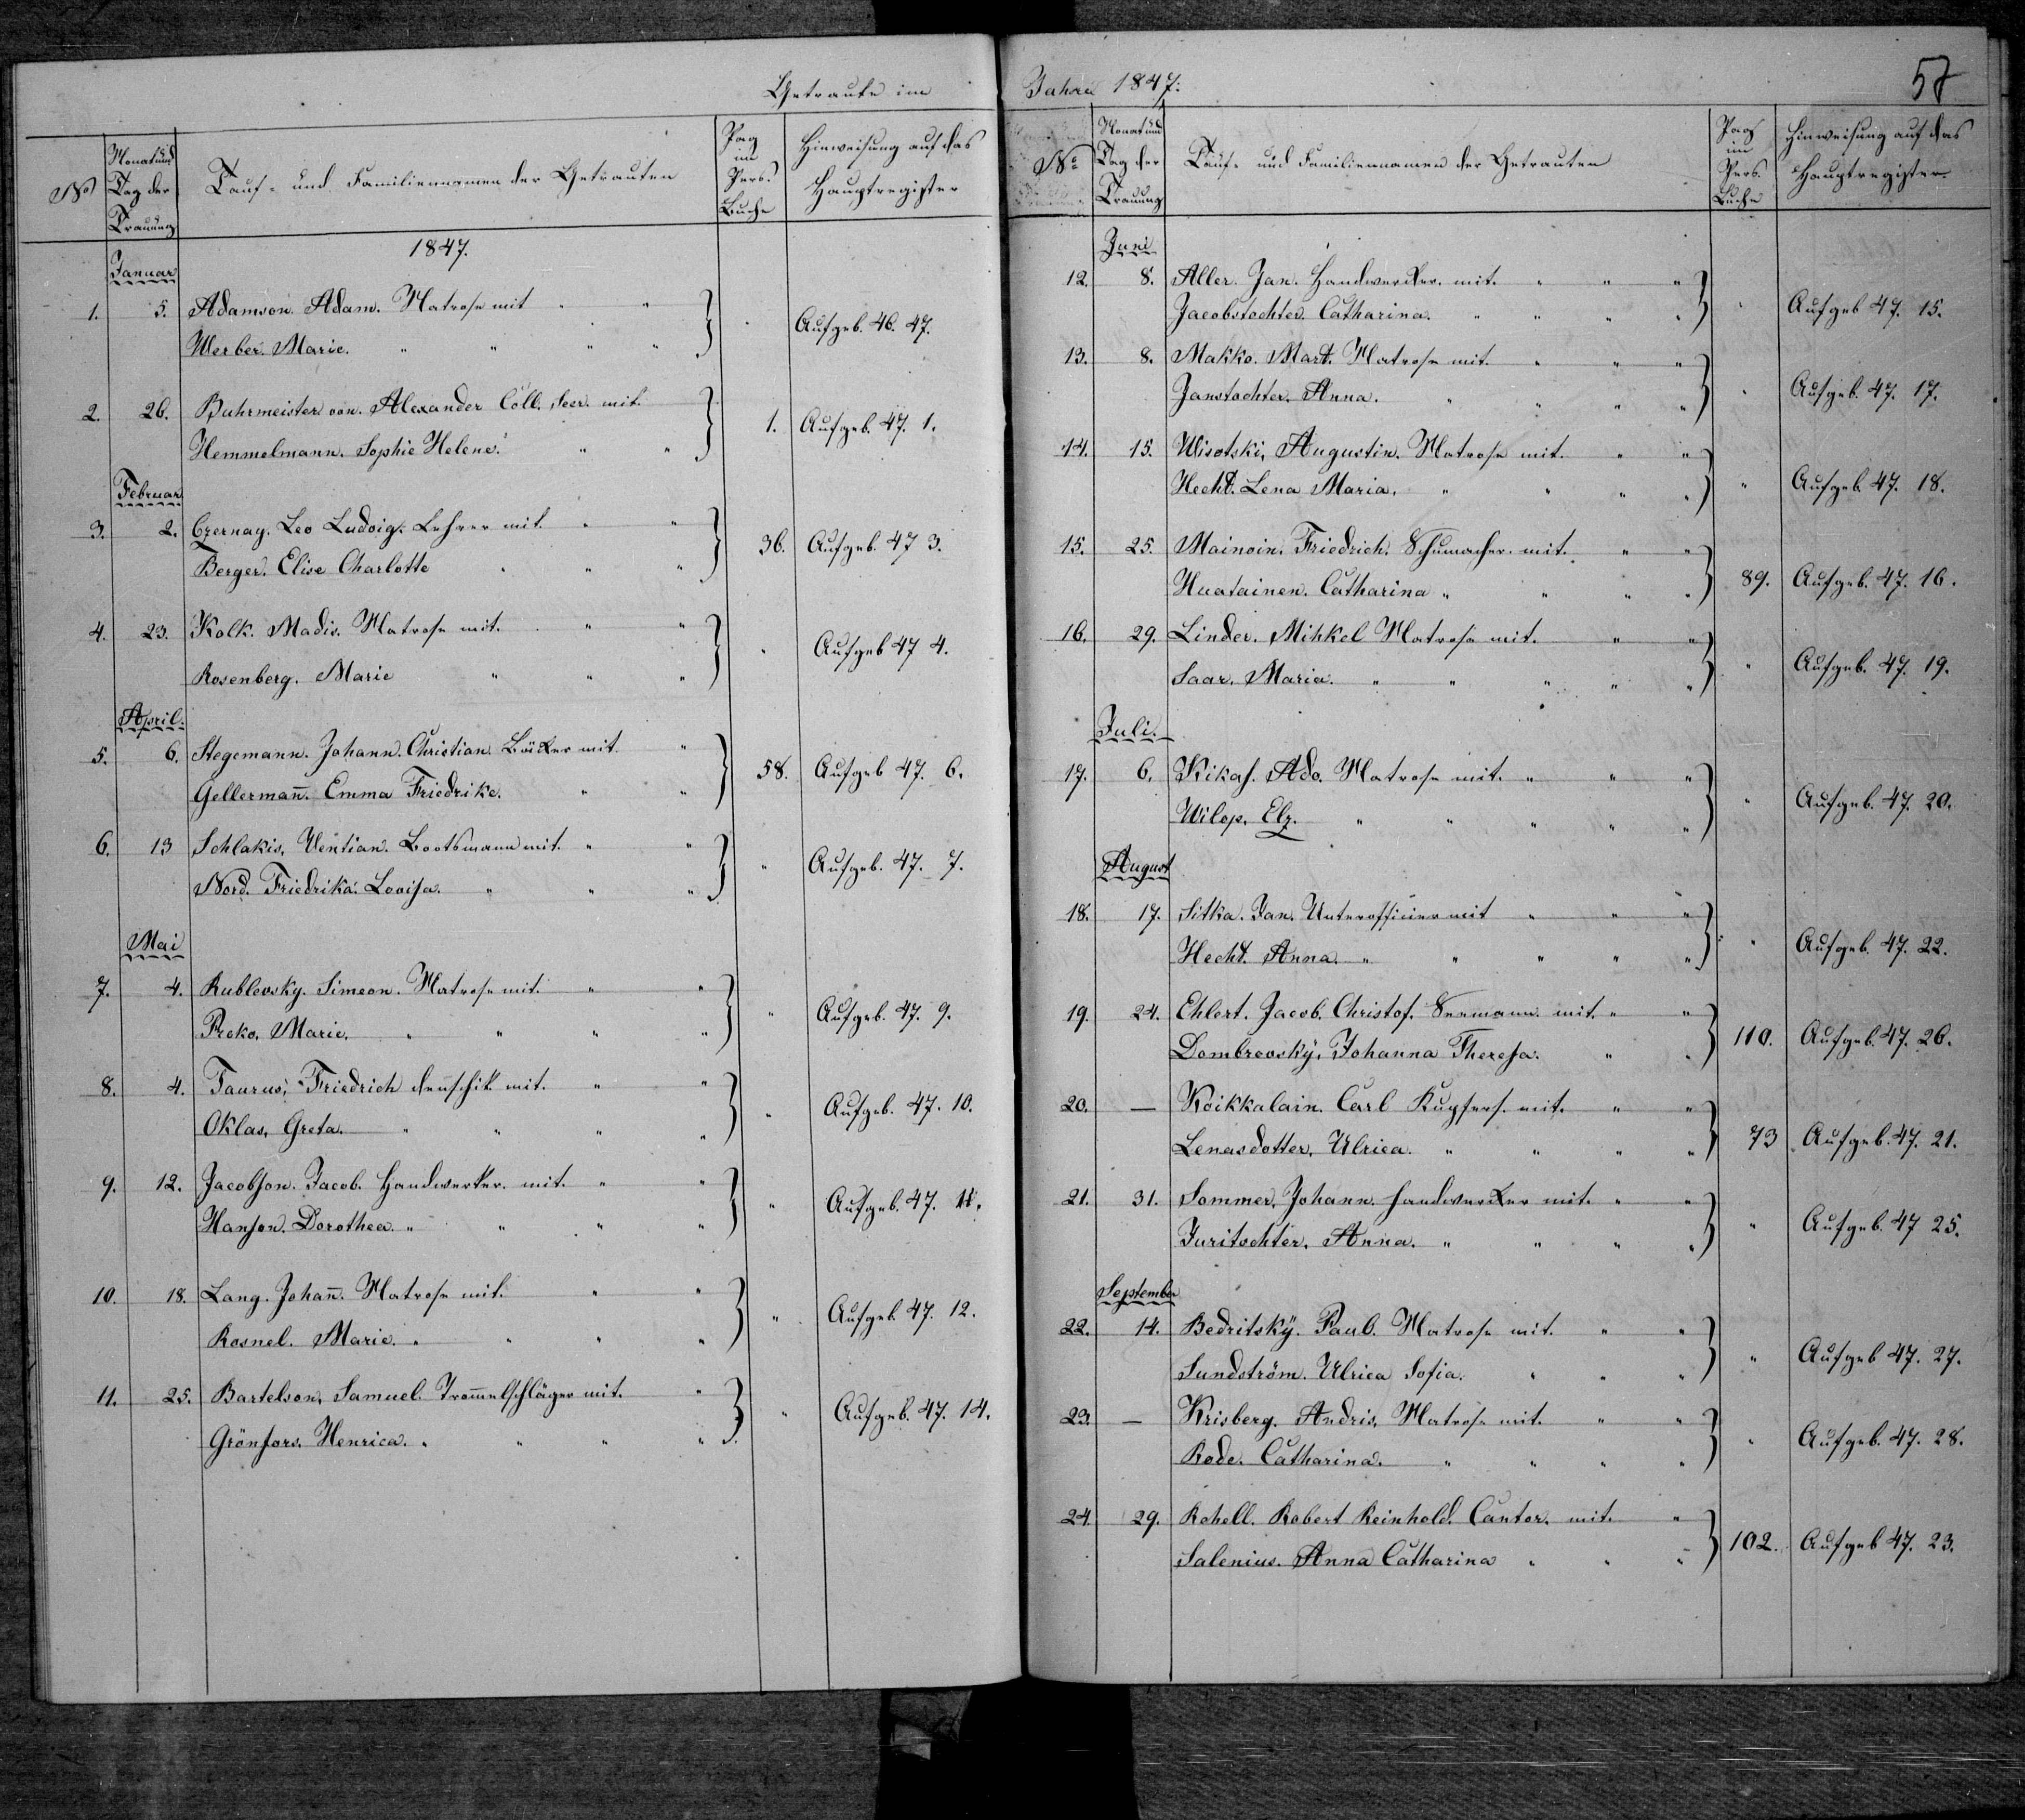 Getraute im
No
Monat und
Tag der
Trauung
Tauf- und Familiennamen der Getrauten
Pag
im
Pers.
Buche
Hinweisung auf das
Hauptregister
1847.
Januar
1. 5. Adamson. Adam. Matrose mit " "
Werber. Marie. " " " "
" Aufgeb. 46. 47.
2. 26. Buhrmeister von. Alexander Coll. Secr. mit.
Hemmelmann. Sophie Helene. " "
1. Aufgeb. 47. 1.
Februar
3. 2. Czernay. Leo Ludvig. Lehrer mit. " "
Berger. Elise Charlotte " " "
36. Aufgeb. 47 3.
4. 23. Kolk. Madis. Matrose mit. " "
Rosenberg. Marie " " "
" Aufgeb 47 4.
April.
5. 6. Stegemann. Johann. Christian. Bäcker mit. "
Gellermañ. Emma Friedrike. " "
58. Aufgeb 47. 6.
6. 13 Schlakis, Ventian. Bootsmann mit. " "
Nord. Friedrika. Lovisa. " " "
" Aufgeb. 47. 7.
Mai
7. 4. Rublevsky. Simeon. Matrose mit. " "
Preko. Marie. " " " "
" Aufgeb. 47. 9.
8. 4. Taurus, Friedrich denschik mit. " "
Oklas, Greta. " " " "
" Aufgeb. 47. 10.
9. 12. Jacobson. Jacob. Handwerker. mit. " "
Hanson. Dorothea. " " " "
" Aufgeb. 47. 11.
10. 18. Lang. Johañ. Matrose mit. " "
Rosnel. Marie. " " " "
" Aufgeb. 47. 12.
11. 25. Bartelson, Samuel. Trom̄elschläger mit. "
Grönfors. Henrica. " " " "
" Aufgeb. 47. 14.
Jahre 1847.
57
No
Monat und
Tag der
Trauung
Tauf- und Familiennamen der Getrauten
Pag
im
Pers.
Buche
Hinweisung auf das
Hauptregister
Juni
12. 8. Aller. Jan. Handwerker. mit. " " "
Jacobstochter. Catharina. " " " "
" Aufgeb 47. 15.
13. 8. Makko. Mart. Matrose mit. " " "
Janstochter. Anna. " " " "
" Aufgeb. 47. 17.
14. 15. Wisotski, Augustin. Matrose mit. " "
Hecht. Lena Maria. " " " "
" Aufgeb. 47. 18.
15. 25. Mainoin. Friedrich. Schumacher. mit. " "
Huatainen. Catharina " " " "
89. Aufgeb. 47. 16.
16. 29. Linder. Mihkel Matrose mit. " "
Saar. Maria. " " " " "
" Aufgeb. 47. 19.
Juli.
17. 6. Kikas. Ado. Matrose mit. " " "
Wilop. Elz. " " " " "
" Aufgeb. 47. 20.
August
18. 17. Sitka. Jan. Unterofficier mit " " "
Hecht. Anna. " " " " "
" Aufgeb. 47. 22.
19. 24. Ehlert. Jacob. Christof. Seemann. mit. " "
Dombrovsky, Johanna Theresa. " "
110. Aufgeb. 47. 26.
20. — Koikkalain. Carl Kupfers. mit. " "
Lenasdotter, Ulrica. " " " "
73 Aufgeb. 47. 21.
21. 31. Sommer, Johann. Handwerker mit. " "
Juritochter. Anna. " " " "
" Aufgeb. 47 25.
September
22. 14. Bedritsky. Paul. Matrose mit. " "
Sundström. Ulrica Sofia. " " "
" Aufgeb 47. 27.
23. — Krisberg. Andris. Matrose mit. " "
Rode. Catharina. " " " "
" Aufgeb. 47. 28.
24. 29. Rohell. Robert Reinhold. Cantor. mit. "
Salenius. Anna Catharina " " "
102. Aufgeb 47. 23.